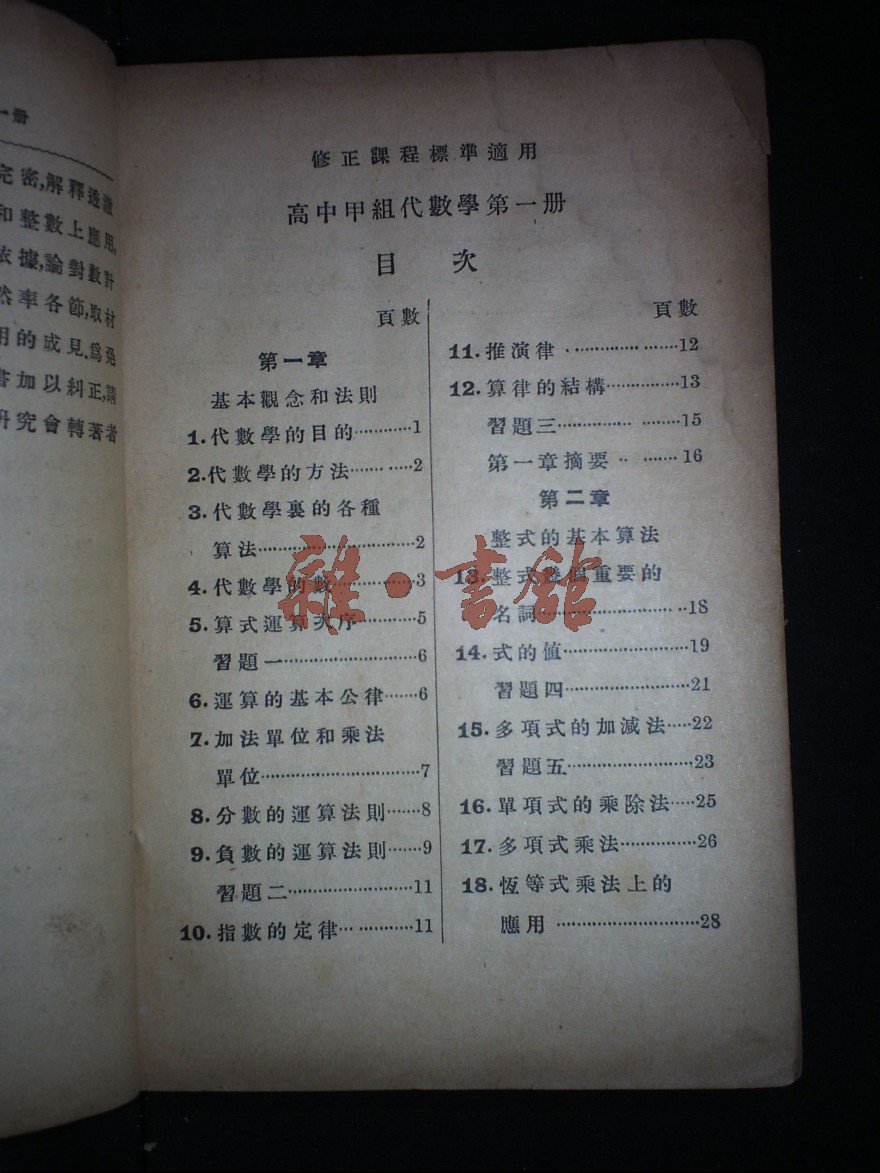 一册
完密,解釋透澈
和整數上應用,
依據,論對數計
然率各節,取材
用的成見,爲免
書加以糾正,請
研究會轉著者
修正課程標準適用
高中甲組代數學第一册
目 次
頁數
第一章
基本觀念和法則
1.代數學的目的…………1
2.代數學的方法…………2
3.代數學裏的各種
算法…………2
4.代數學的數…………3
5.算式運算次序…………5
習題一…………6
6.運算的基本公律……6
7.加法單位和乘法
單位…………7
8.分數的運算法則……8
9.負數的運算法則……9
習題二…………11
10.指數的定律…………11
頁數
11.推演律…………12
12.算律的結構…………13
習題三…………15
第一章摘要…………16
第二章
整式的基本算法
13.整式幾個重要的
名詞…………18
14.式的值…………19
習題四…………21
15.多項式的加減法……22
習題五…………23
16.單項式的乘除法……25
17.多項式乘法…………26
18.恆等式乘法上的
應用…………28
雜·書館